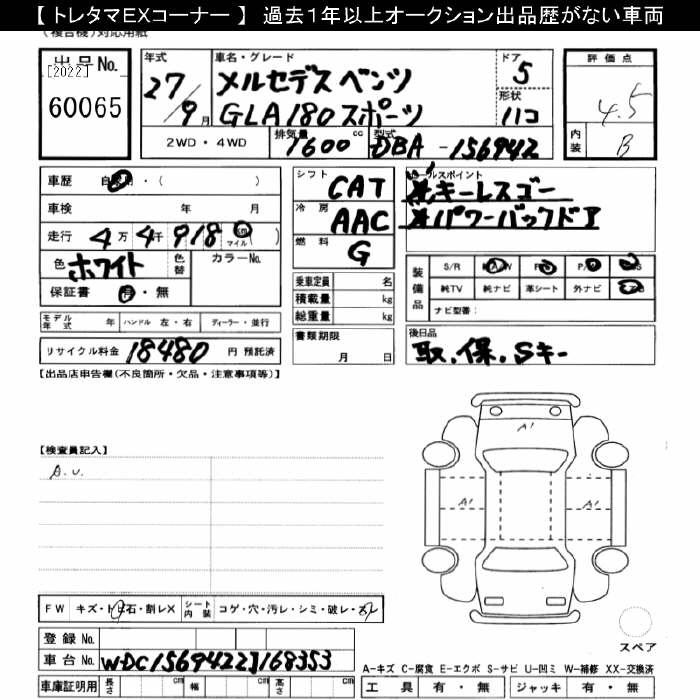 【 トレタマEXコーナー 】 過去1年以上オークション出品歴がない車両
(複合機)対応用紙
出品No.
[2022]
60065
年式
27/9月
車名・グレード
メルセデス ベンツ
GLA180 スポーツ
ドア
5
形状
ハコ
評価点
4.5
内装
B
2WD・4WD
排気量
1600 cc
型式
DBA-156942
車歴 自家用・( )
車検 年 月
走行 4万4千918 km マイル( )
色 ホワイト 色替 カラーNo.
保証書 有・無
シフト CAT
冷房 AAC
燃料 G
乗車定員 名
積載量 kg
総重量 kg
書類期限
月 日
セールスポイント
※キーレスゴー
※パワーバックドア
装備品
S/R A/W P/S P/W ABS
純TV 純ナビ 革シート 外ナビ
ナビ型番:
モデル年式 年 ハンドル 左・右 ディーラー・並行
リサイクル料金 18480 円 預託済
後日品
取.保.Sキー
【出品店申告欄(不良箇所・欠品・注意事項等)】
【検査員記入】
A.U.
A1
A1
A1
FW キズ・トビ石・割レX シート内装 コゲ・穴・汚レ・シミ・破レ・スレ
登録No.
車台No. WDC1569422J168353
スペア
A-キズ C-腐食 E-エクボ S-サビ U-凹ミ W-補修 XX-交換済
車庫証明用 長さ cm 幅 cm 高さ cm
工具 有・無 ジャッキ 有・無